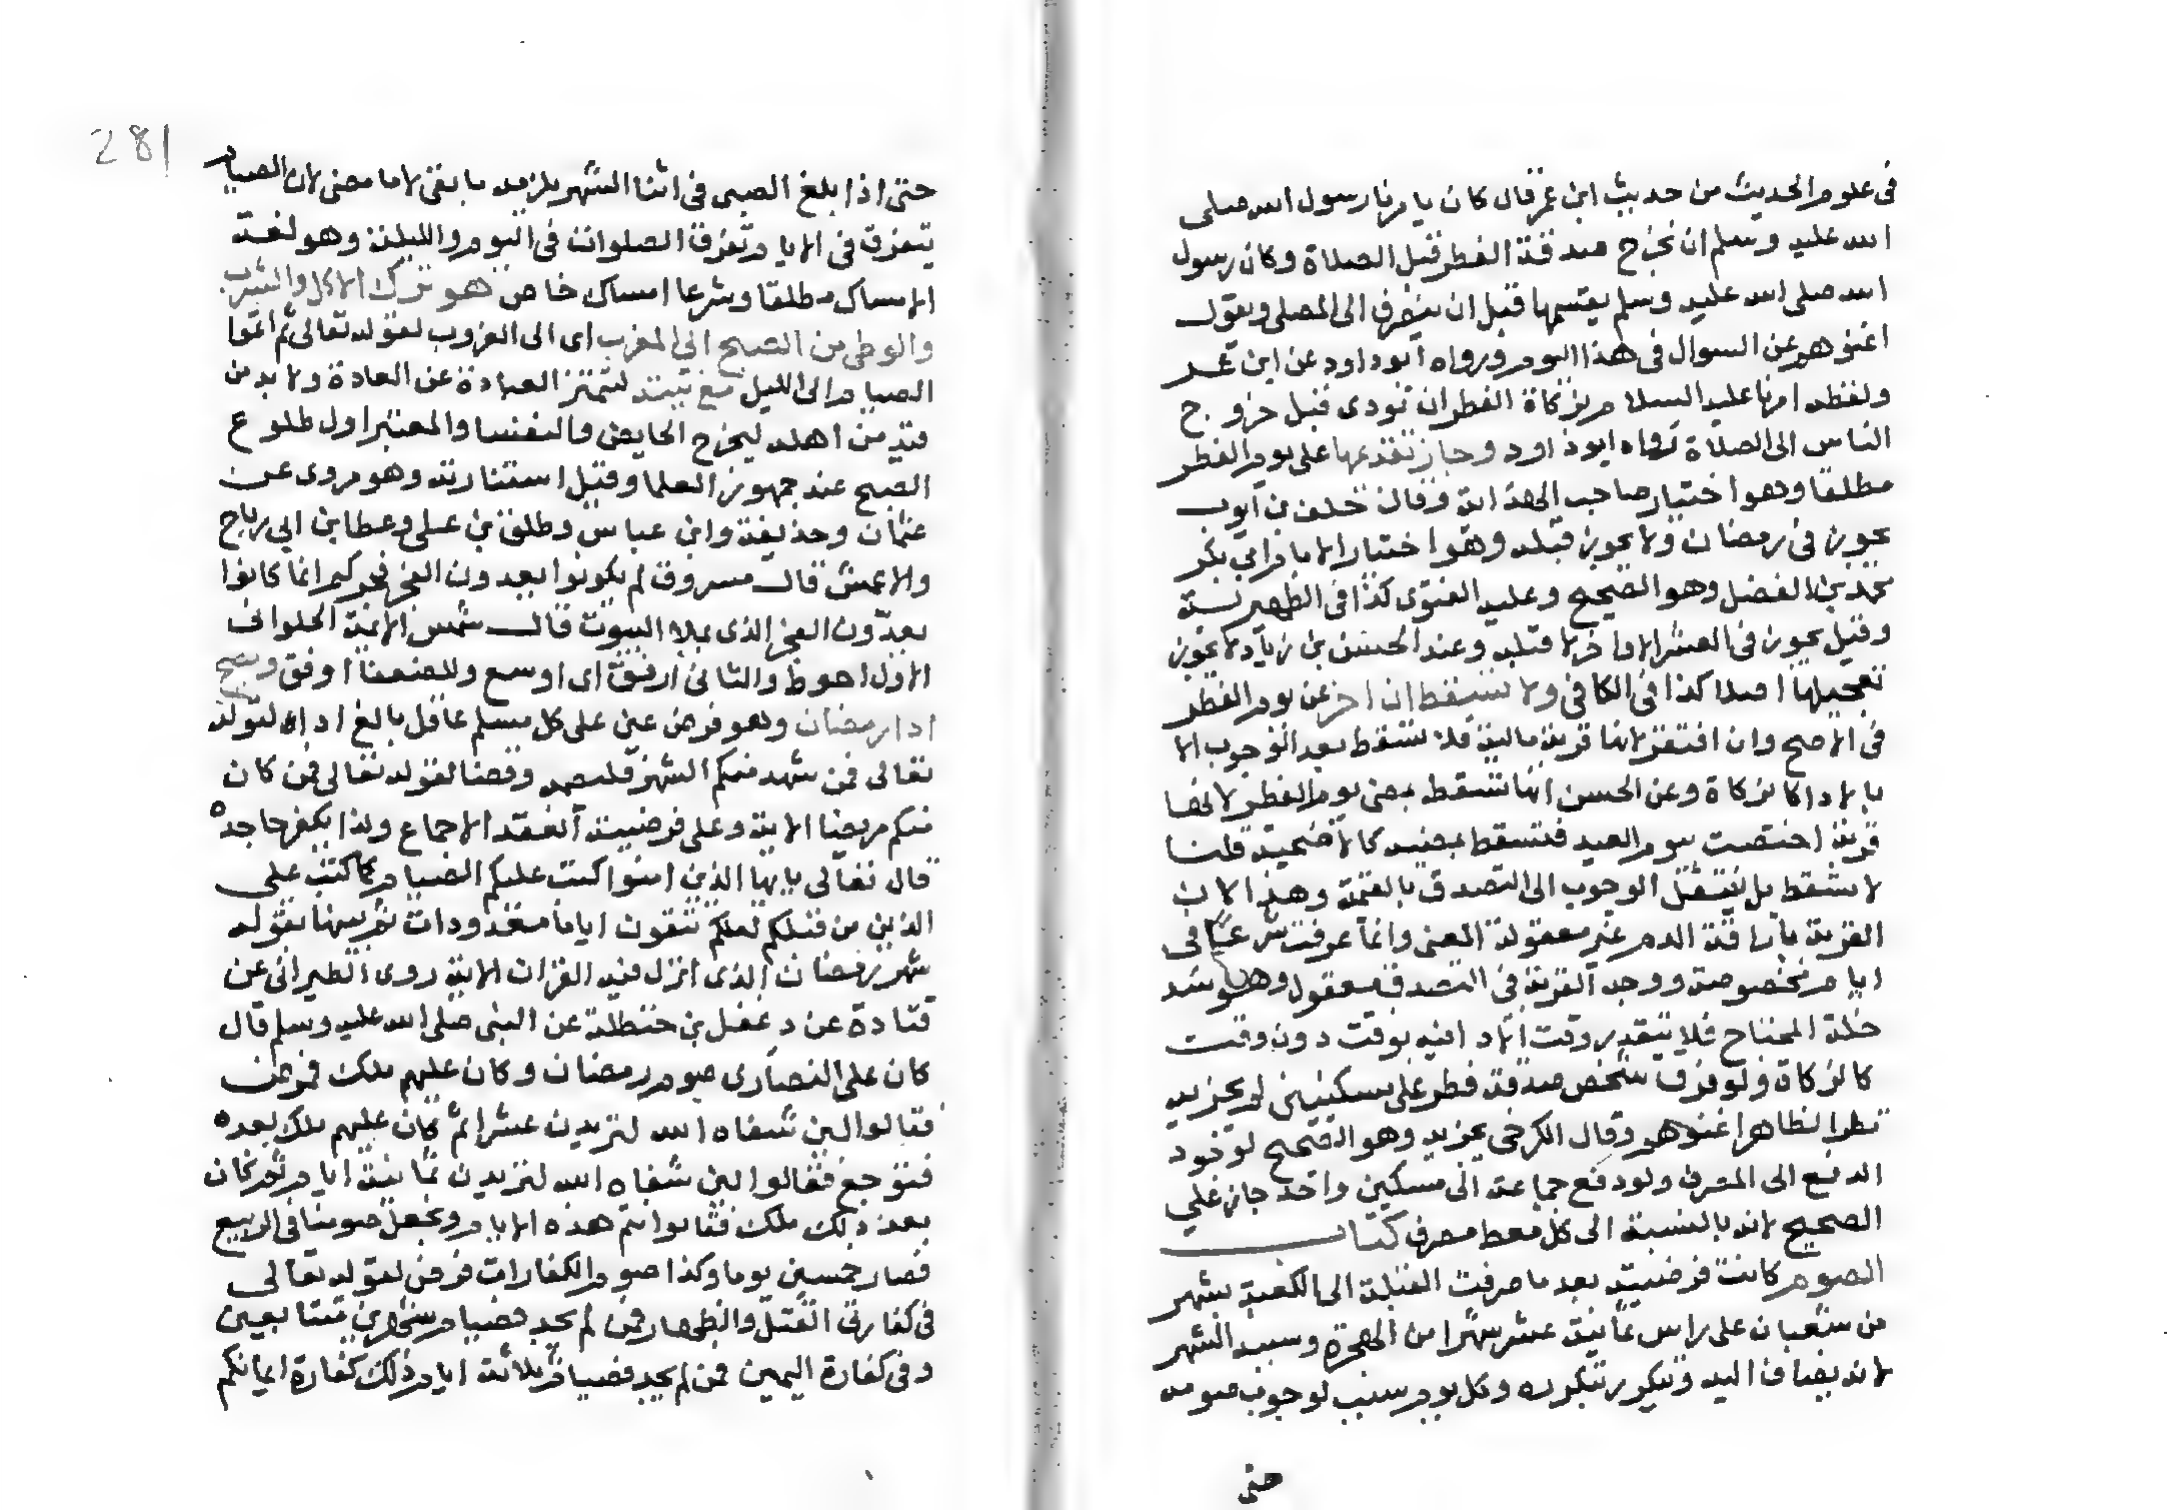 في علوم الحديث من حديث ابن عمر قال كان يامرنا رسول الله صلى
الله عليه وسلم ان نخرج صدقة الفطر قبل الصلاة وكان رسول
الله صلى الله عليه وسلم يقسمها قبل ان ينصرف الى المصلى ويقول
اغنوهم عن السوال في هذا اليوم ورواه ابو داود عن ابن عمر
ولفظه امرنا عليه السلام بزكاة الفطر ان تودى قبل خروج
الناس الى الصلاة رواه ابو داود وجاز تقديمها على يوم الفطر
مطلقا وهو اختيار صاحب الهداية وقال خلف بن ايوب
يجوز في رمضان ولا يجوز قبله وهو اختيار الامام ابي بكر
محمد بن الفضل وهو الصحيح وعليه الفتوى كذا في الظهيرية
وقيل يجوز في العشر الاواخر لا قبله وعند الحسن بن زياد لا يجوز
تعجيلها اصلا كذا في الكافي ولا تسقط ان اخر عن يوم الفطر
في الاصح وان افتقر لانها قربة مالية فلا تسقط بعد الوجوب الا
بالاداء كالزكاة وعن الحسن انها تسقط بمضى يوم الفطر لانها
قربة اختصت بيوم العيد فتسقط بمضيه كالاضحية قلنا
لا تسقط بل ينتقل الوجوب الى التصدق بالقيمة وهذا لان
القربة باراقة الدم غير معقولة المعنى وانما عرفت شرعا في
ايام مخصوصة ووجه القربة في التصدق معقول وهو سد
خلة المحتاج فلا يتقدر وقت اداء فيه بوقت دون وقت
كالزكاة ولو فرق شخص صدقة فطر على مسكينين لم يجزيه
نظرا لظاهر اغنوهم وقال الكرخي يجزيه وهو الصحيح لوجود
الدفع الى المصرف ولو دفع جماعة الى مسكين واحد جاز على
الصحيح لانه بالنسبة الى كل معط مصرف كتاب
الصوم كانت فرضيته بعد ما صرفت القبلة الى الكعبة بشهر
من شعبان على راس ثمانية عشر شهرا من الهجرة وسببه الشهر
لانه يضاف اليه ويتكرر بتكرره وكل يوم سبب لوجوب صومه
حتى
281
حتى اذا بلغ الصبي في اثنا الشهر يلزمه ما بقى لا ما مضى لان الصيام
يتفرق في الايام تفرق الصلوات في اليوم والليلة وهو لغة
الامساك مطلقا وشرعا امساك خاص هو ترك الاكل والشرب
والوطى من الصبح الى المغرب اى الى الغروب لقوله تعالى ثم اتموا
الصيام الى الليل مع نيته لتتميز العبادة عن العادة ولا بد من
قيد من اهله ليخرج الحايض والنفسا والمعتبر اول طلوع
الصبح عند جمهور العلما وقيل استنارته وهو مروى عن
عثمان وحذيفة وابن عباس وطلق بن على وعطا بن ابي رباح
والاعمش قال مسروق لم يكونوا يعدون الفجر فجركم انما كانوا
يعدون الفجر الذى يملا البيوت قال شمس الايمة الحلوانى
الاول احوط والثانى ارفق اى اوسع وللضعفا اوفق ويصح
ادا رمضان وهو فرض عين على كل مسلم عاقل بالغ اداء لقوله
تعالى فمن شهد منكم الشهر فليصمه وقضا لقوله تعالى فمن كان
منكم مريضا الاية وعلى فرضيته انعقد الاجماع ولذا يكفر جاحده
قال تعالى يايها الذين امنوا كتب عليكم الصيام كما كتب على
الذين من قبلكم لعلكم تتقون اياما معدودات ثم بينها بقوله
شهر رمضان الذى انزل فيه القران الاية روى الطبرانى عن
قتادة عن دغفل بن حنظلة عن النبى صلى الله عليه وسلم قال
كان على النصارى صوم رمضان وكان عليهم ملك فمرض
فقالوا لين شفاه الله لنزيدن عشرا ثم كان عليهم ملك بعده
فتوجع فقالوا لين شفاه الله لنزيدن ثمانية ايام ثم كان
بعد ذلك ملك فقالوا نتم هذه الايام ونجعل صومنا في الربيع
فصار خمسين يوما وكذا صوم الكفارات فرض لقوله تعالى
في كفارتى القتل والظهار فمن لم يجد فصيام شهرين متتابعين
وفي كفارة اليمين فمن لم يجد فصيام ثلاثة ايام ذلك كفارة ايمانكم